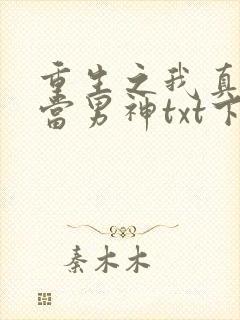 重生之我真
当男神txt下
秦木木